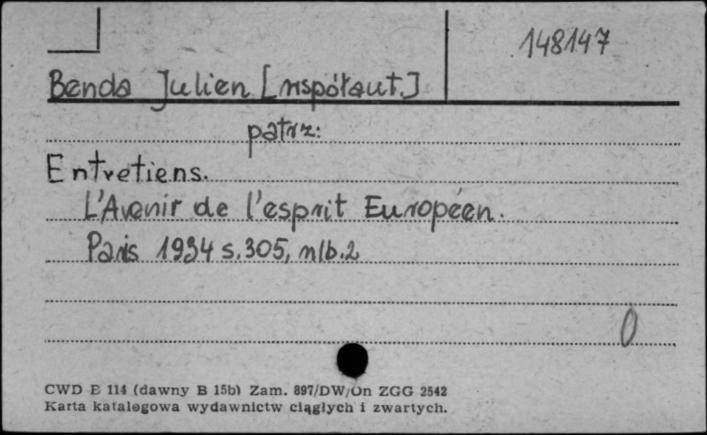 148147
Benda Julien [współaut.]
patrz:
Entretiens.
L'Avenir de l'esprit Européen.
Paris 1934 s. 305, nlb. 2
0
CWD B 114 (dawny B 15b) Zam. 897/DW/On ZGG 2542
Karta katalogowa wydawnictw ciągłych i zwartych.